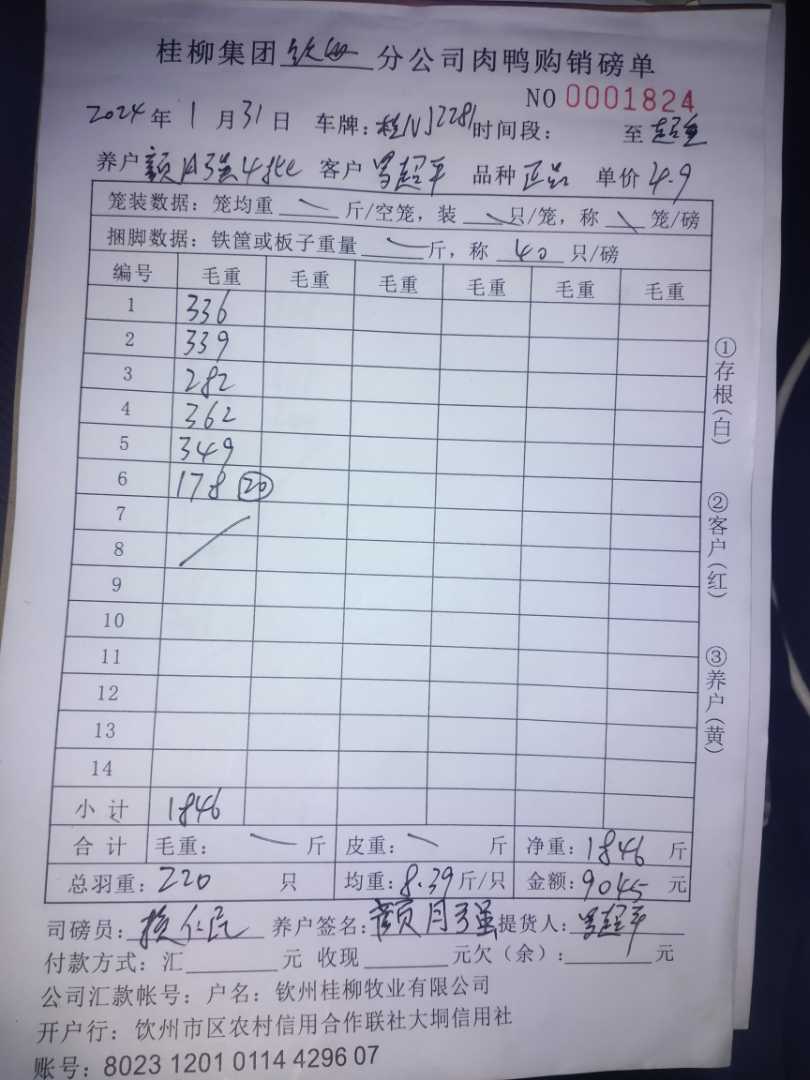 桂柳集团 钦州 分公司肉鸭购销磅单
NO 0001824
2024 年 1 月 31 日 车牌：桂N J2281 时间段： 至
养户 颜月强 4批 客户 罗超平 品种 正品 单价 4.9
笼装数据：笼均重 斤/空笼，装 只/笼，称 笼/磅
捆脚数据：铁筐或板子重量 斤，称 40 只/磅
编号 毛重 毛重 毛重 毛重 毛重 毛重
1 336
2 339
3 282
4 362
5 349
6 178 20
7
8
9
10
11
12
13
14
小计 1846
合计 毛重： 斤 皮重： 斤 净重：1846 斤
总羽重：220 只 均重：8.39 斤/只 金额：9045 元
司磅员： 仁民 养户签名：颜月强 提货人：罗超平
付款方式：汇 元 收现 元欠（余）： 元
公司汇款帐号：户名：钦州桂柳牧业有限公司
开户行：饮州市区农村信用合作联社大垌信用社
账号：8023 1201 0114 4296 07
①存根（白）
②客户（红）
③养户（黄）